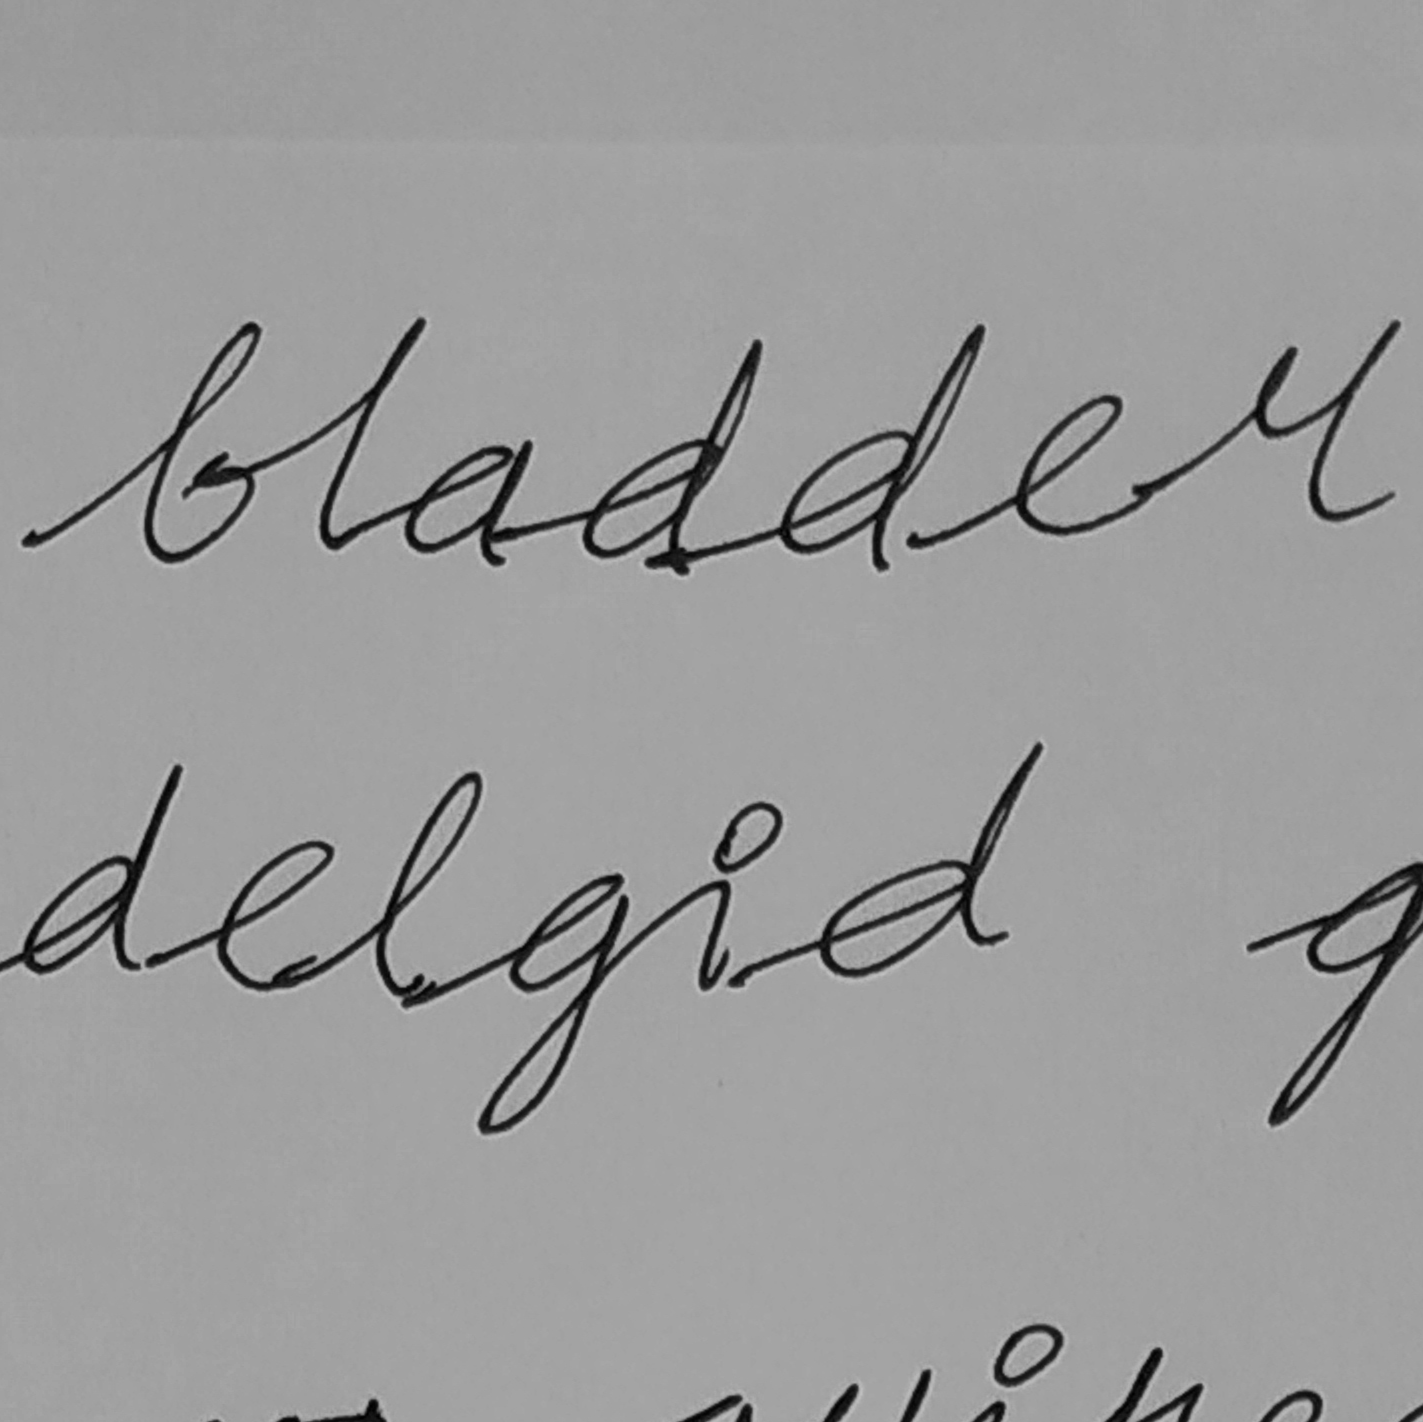 bladder
delgid g